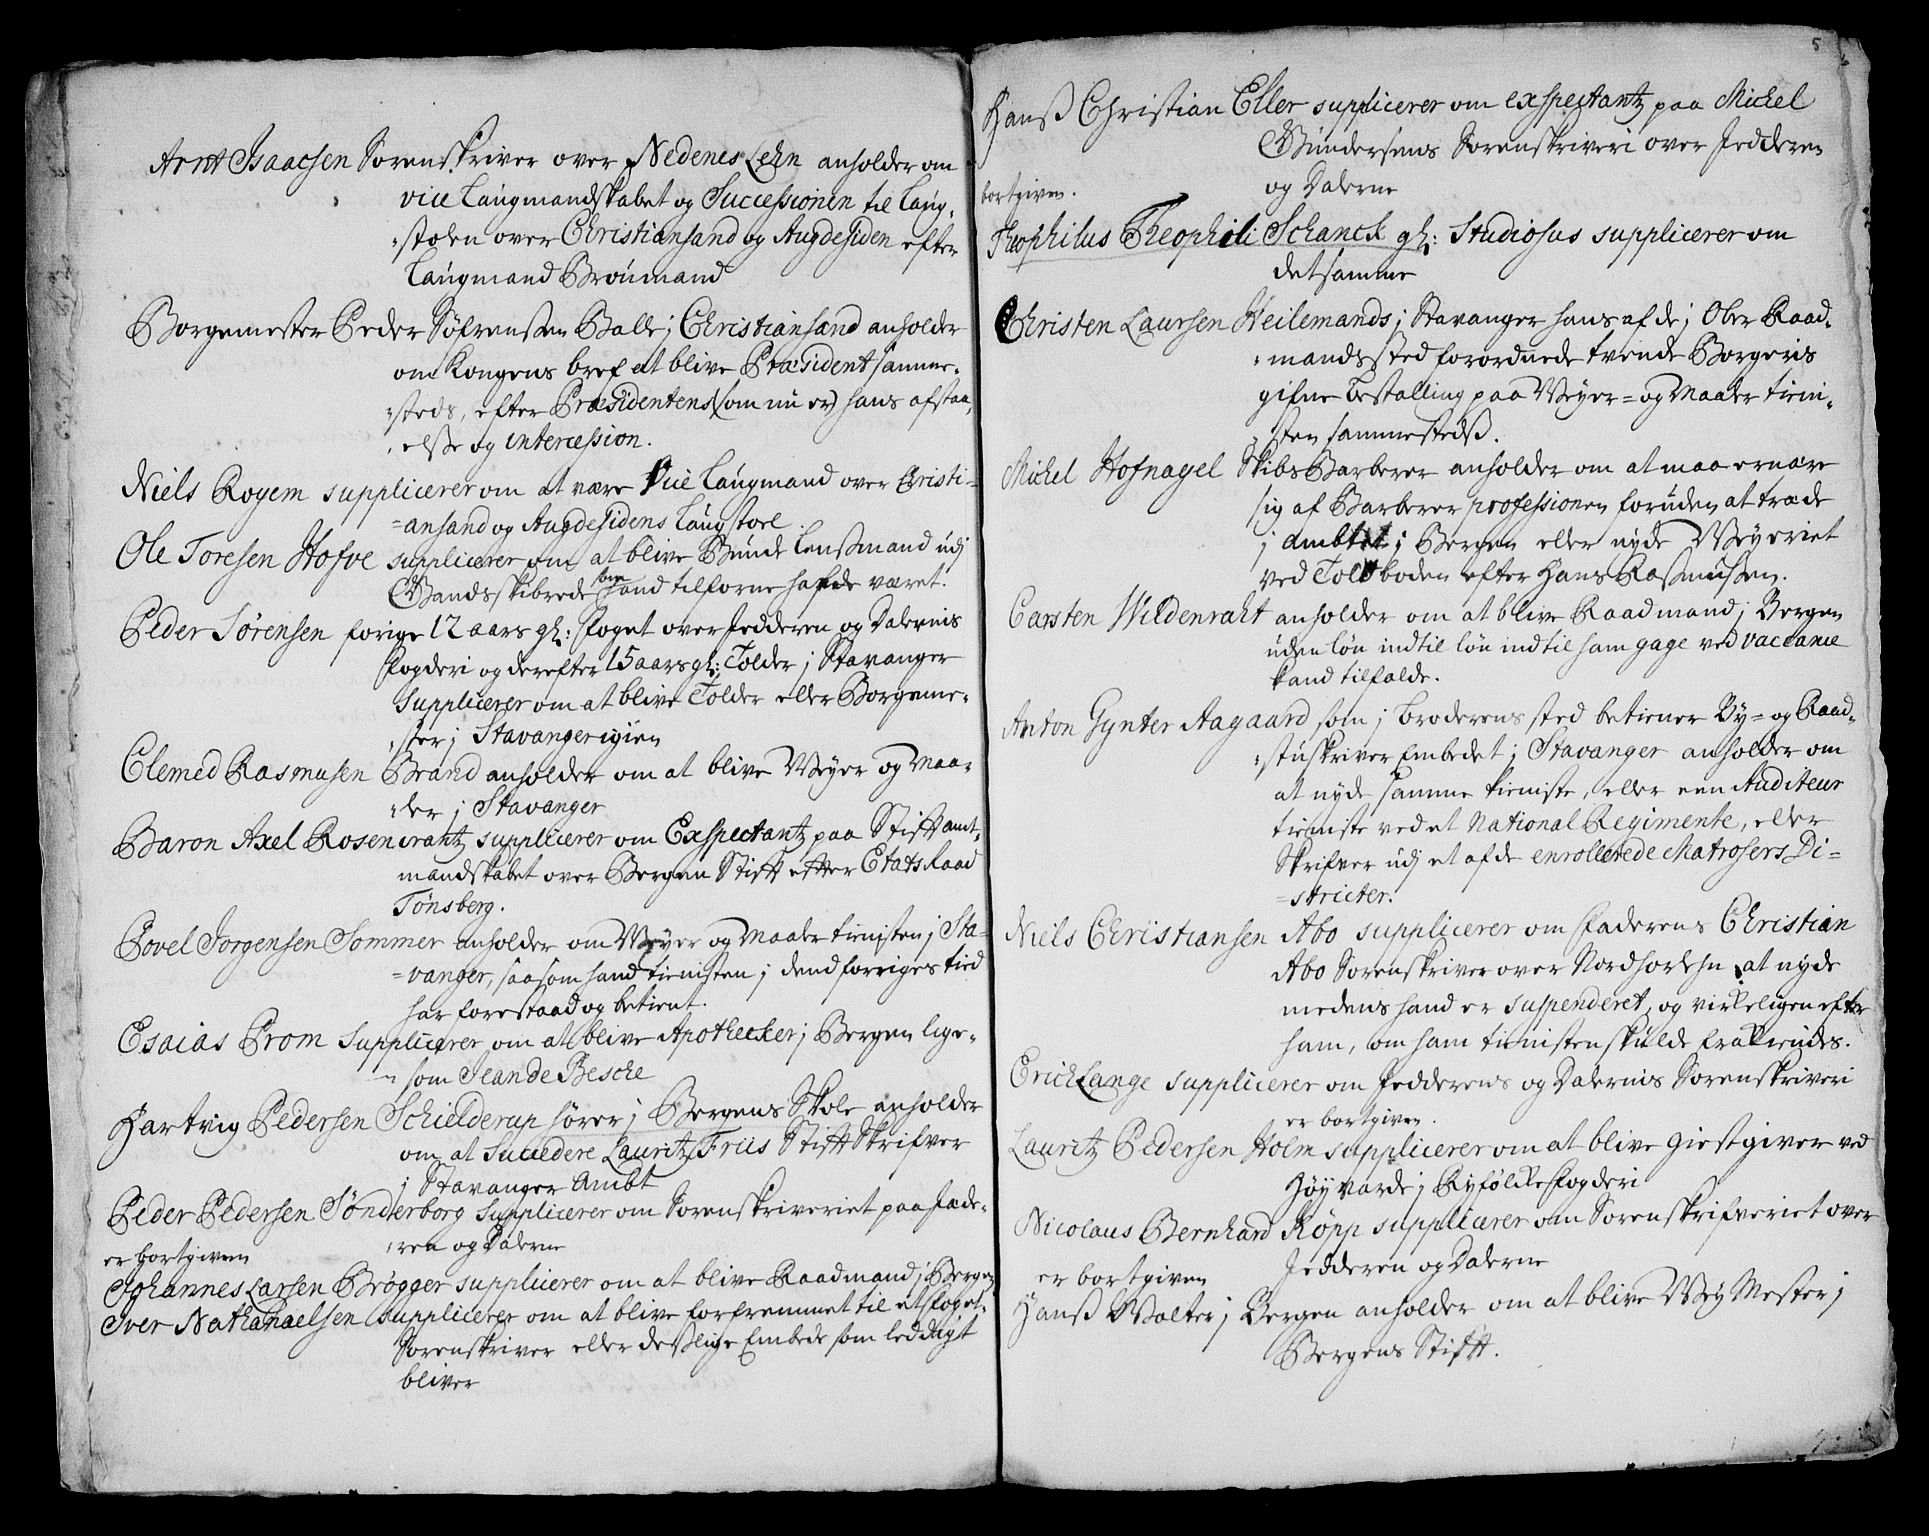 Arnt Isaacsen Sorenskriver over Nedenes Lehn anholder om
vice Laugmandskabet og Successionen til Laug-
stolen over Christiansand og Augdesiden efter
Laugmand Broumand
Borgemester Peder Söfrenssen Balle i Christiansand anholder
om Kongens bref at blive Præsident samme-
steds, efter Præsidentens (som nu er) hans afstaa-
else og intercession.
Niels Royem supplicerer om at være Vice Laugmand over Christi-
ansand og Augdesidens Laugstoel.
Ole Toresen Hofve supplicerer om at blive Bunde Lenssmand udj
Gandsskibrede som hand tilforne hafde været.
Peder Sörensen forige 12 aars gl: Foget over Jedderen og Dalernis
Fogderi og derefter 15 aars gl: Tolder i Stavanger
supplicerer om at blive Tolder eller Borgeme-
ster i Stavanger igien
Clemed Rasmusen Brand anholder om at blive Weyer og Maa-
ler i Stavanger
Baron Axel Rosencrantz supplicerer om Exspectantz paa Stifftamt-
mandskabet over Bergen Stifft effter Etats Raad
Tönsberg.
Povel Jorgensen Sommer anholder om Weyer og Maaler tienisten i Sta-
vanger, saasom hand tienisten i dend forriges tied
har forestaad og betient.
Esaias Prom supplicerer om at blive Apothecker i Bergen lige-
som Jean de Besche
Hartvig Pedersen Schielderup hörer i Bergens Skole anholder
om at succedere Lauritz Friis Stifft Skrifver
i Stavanger Ambt
Peder Pedersen Sönderborg supplicerer om Sorenskriveriet paa Jæde-
ren og Dalerne
er bortgiven
Johannes Larsen Brögger supplicerer om at blive Raadmand i Bergen
Iver Nathanaelsen supplicerer om at blive forfremmet til et foget-
Sorenskriver eller desslige Embede som leddigt
bliver
5
Hanss Christian Eller supplicerer om exspectantz paa Michel
Gundersens Sorenskriveri over Jedderen
og Dalerne
bortgiven.
Theophilus Theophili Schanck gl: Studiosus supplicerer om
det samme
Christen Laursen Heilemands i Stavanger hans af de i Ober Raad-
mands sted forordnede tvende Borgeris
gifne bestalling paa Weyer= og Maaler tieni-
sten sammestedss.
Michel Hofnagel Skibs Barberer anholder om at maa ernære
sig af Barberer professionen foruden at træde
i Ambtet i Bergen eller nyde Weyeriet
ved Toldboden efter Hans Rassmussen.
Carsten Wildenraht anholder om at blive Raadmand i Bergen
uden lön indtil lön indtil ham gage ved vaccance
kand tilfalde.
Anton Gynter Aagaard som i broderens sted betiener By= og Raad-
stuskriver Embedet i Stavanger anholder om
at nyde samme tieniste, eller een Auditeur
tieniste ved et National Regimente, eller
Skrifver udj et af de enrollerede Matrosers Di=
=stricter.
Niels Christiansen Abo supplicerer om faderens Christian
Abo Sorenskriver over Nordhorlehn at nyde
medens hand er suspenderet, og virkeligen efter
ham, om ham tienisten skulde frakiendes.
Erich Lange supplicerer om Jedderens og Dalernis Sorenskriveri
er bortgiven.
Lauritz Pedersen Holm supplicerer om at blive giestgiver ved
Höyvarde i Ryfölcke fogderi
Nicolaus Bernhard Köpp supplicerer om Sorenskrifveriet over
Jedderen og Dalerne
er bortgiven
Hanss Wolter i Bergen anholder om at blive Wey Mester i
Bergens Stifft.